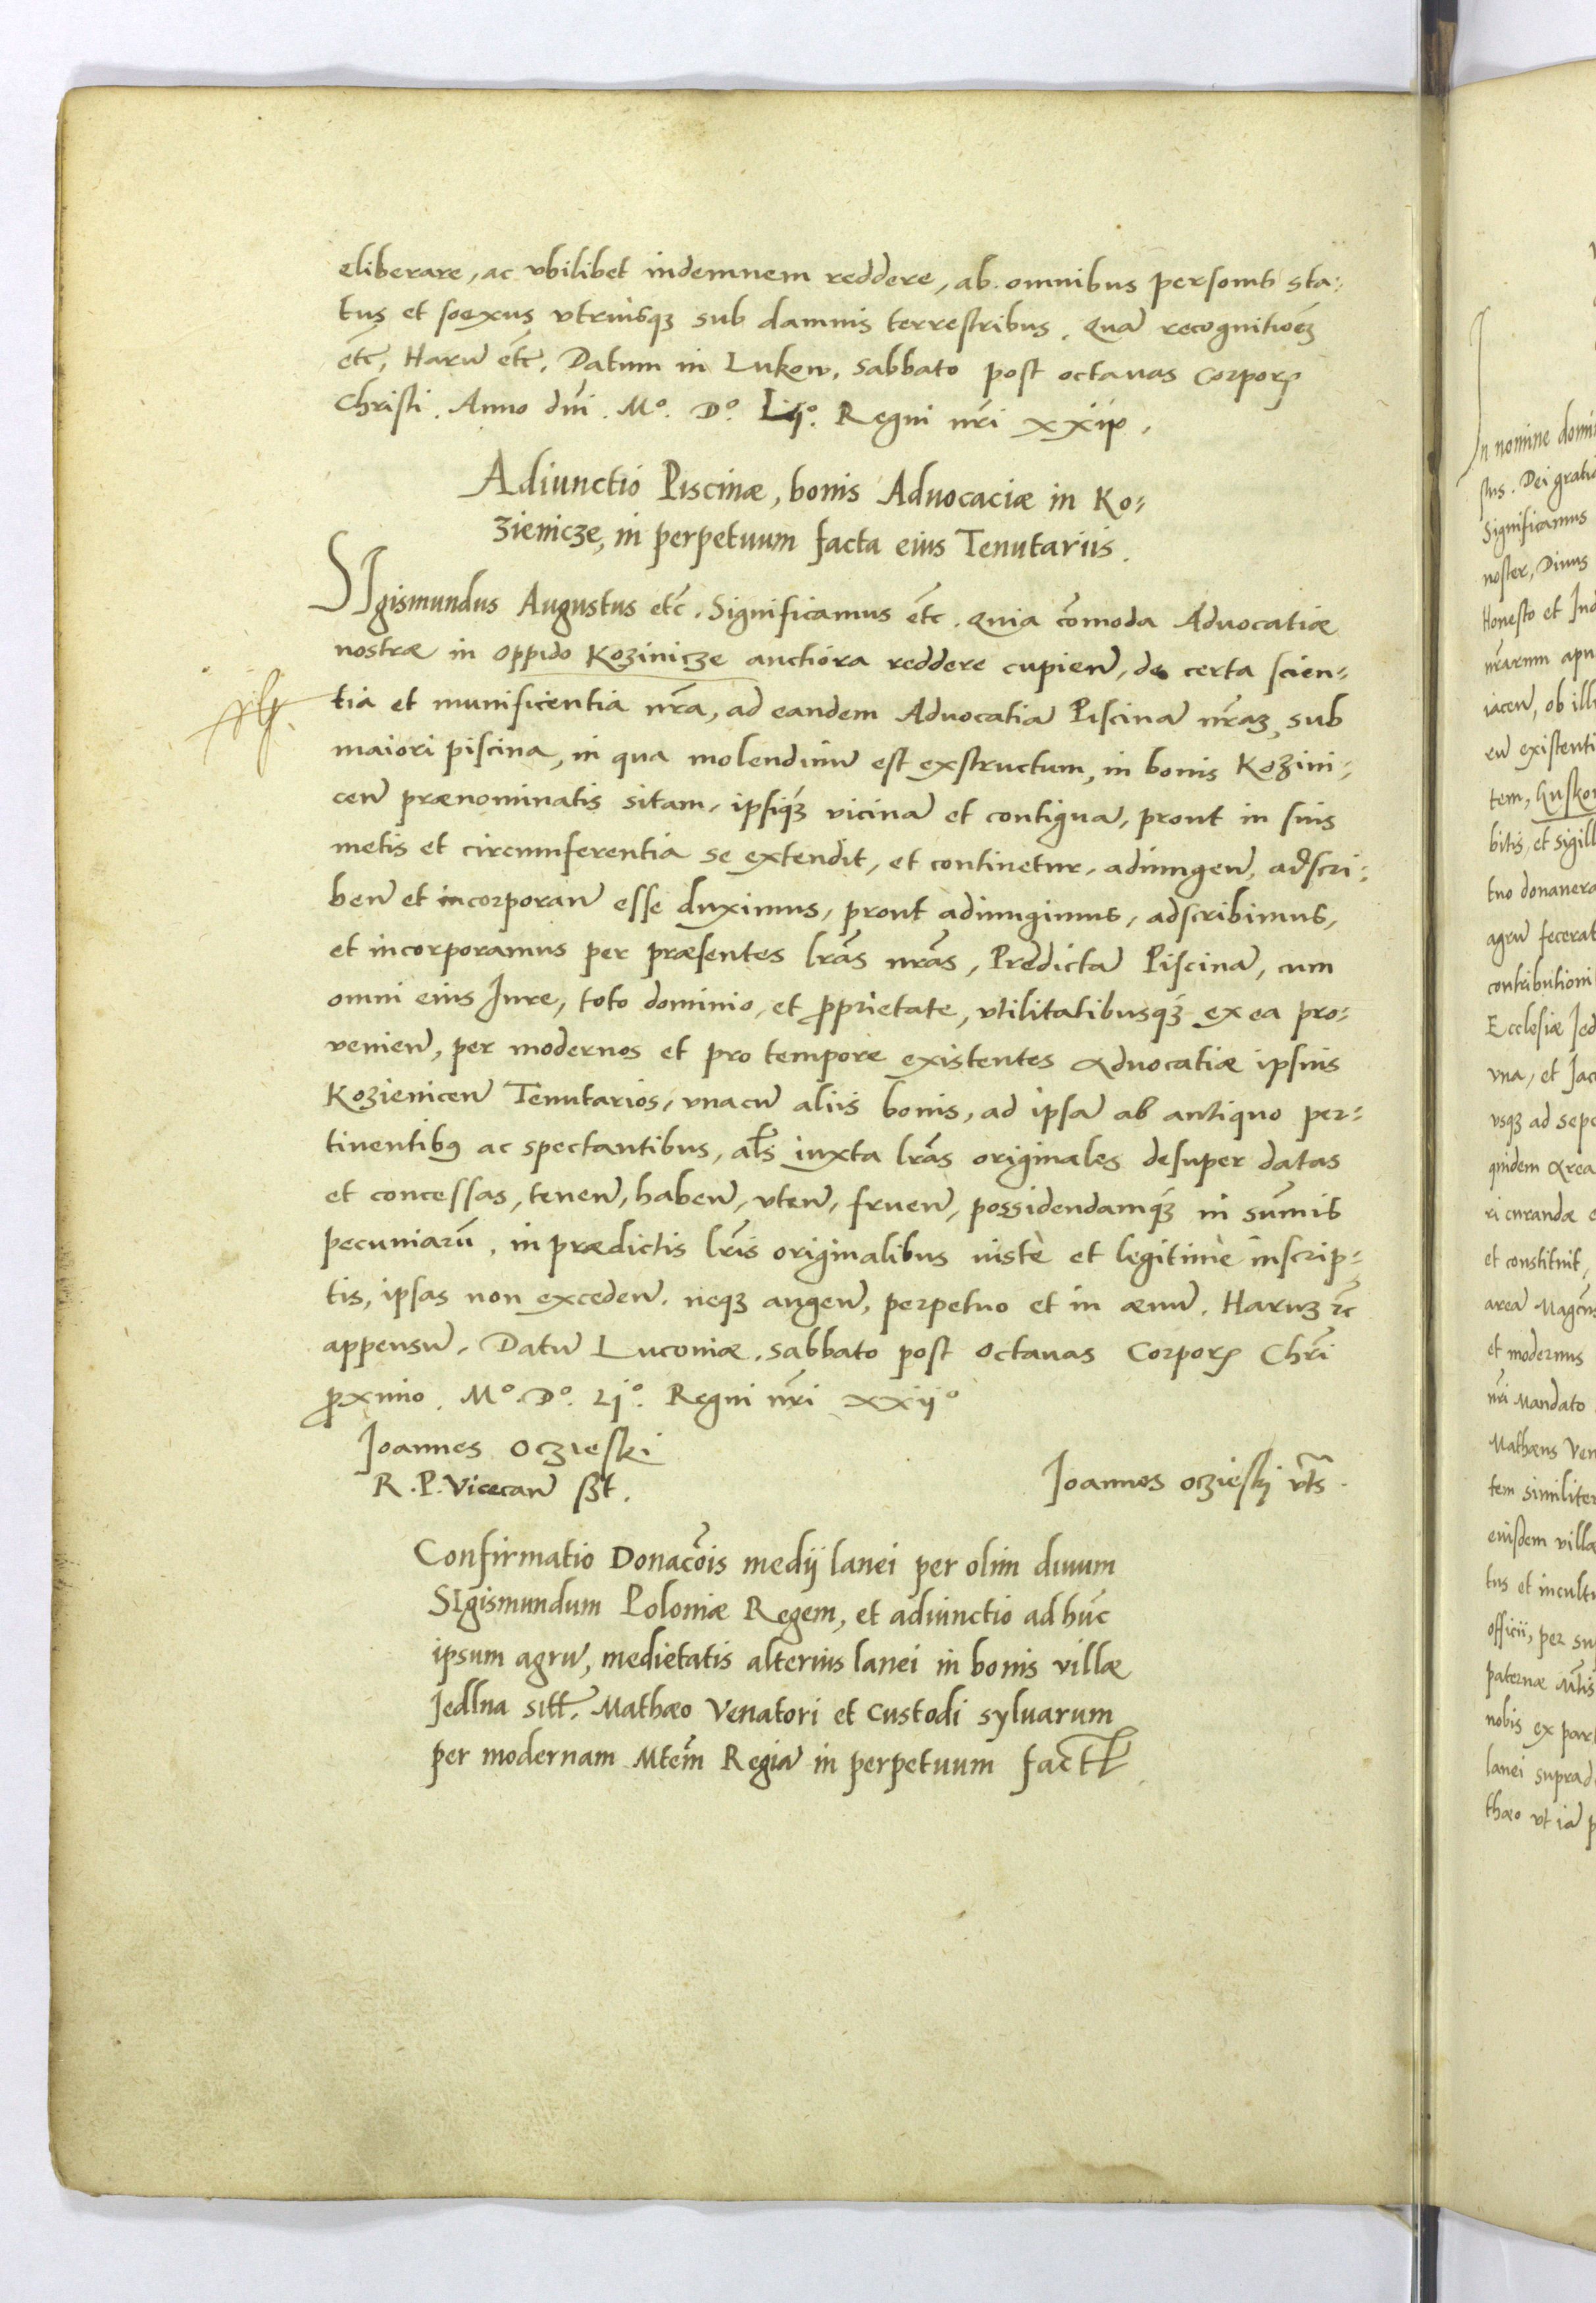 eliberare, ac vbilibet indemnem reddere, ab omnibus personis sta:
tus et soexus vtriusq3 sub damnis terrestribus. Quã recognitioẽ3
etc̃, Harũ etc̃. Datum in Lukow, sabbato post octauas Corporꝭ
Christi. Anno dñi. Mº. Dº. Lijº. Regni nr̃i xxiiº.
Adiunctio Piscinæ, bonis Aduocaciæ in Ko-
zienicze, in perpetuum facta eius Tenutariis.
SIgismundus Augustus etc̃. Significamus etc̃. Quia cõmoda Aduocatiæ
nostræ in oppido Kozinicze auctiora reddere cupieñ, de certa scien-
tia et munificentia nr̃a, ad eandem Aduocatiã Piscinã nr̃a3, sub
maiori piscina, in qua molendinũ est exstructum, in bonis Kozini-
ceñ prænominatis sitam, ipsiq3 vicinã et contiguã, prout in suis
metis et circumferentia se extendit, et continetur, adiungeñ, adscri:
beñ et incorporañ esse duximus, prout adiungimus, adscribimus,
et incorporamus per præsentes lr̃as nr̃as, Predictã Piscinã, cum
omni eius Iure, toto dominio, et ꝓprietate, vtilitatibusq3 ex ea pro-
venieñ, per modernos et pro tempore existentes Aduocatiæ ipsius
Kozieniceñ Tenutarios, vnacũ aliis bonis, ad ipsã ab antiquo per-
tinentibꝰ ac spectantibus, al̃s iuxta lr̃as originales desuper datas
et concessas, teneñ, habeñ, vteñ, frueñ, possidendamq3 in sum̃is
pecuniarũ, in prædictis lr̃is originalibus iustè et legitimè inscrip-
tis, ipsas non excedeñ. neq3 augeñ, perpetuo et in æuũ. Haru3 etc̃
appensũ. Datũ Luconiæ, sabbato post Octauas Corporꝭ Chr̃i
ꝓximo. Mº. Dº. Lijº. Regni nr̃i xxiiº
Ioannes Oczieski
R. P. Vicecañ sst.
Ioannes oczieskj vt̃s.
Confirmatio Donacõis medij lanei per olim diuum
SIgismundum Poloniæ Regem, et adiunctio ad hũc
ipsum agrũ, medietatis alterius lanei in bonis villæ
Jedlna sitæ, Mathæo Venatori et Custodi syluarum
per modernam Mtem̃ Regiã in perpetuum facta
In nomine domi
stus. Dei gratia
Significamus
noster, Diuus
Honesto et Ind
nr̃arum apu
iaceñ, ob ill
eũ existenti
tem, Guskow
bitis, et sigill
tuo donauera
agrũ fecerat
contributioni
Ecclesiæ Jed
vna, et Jac
vsq3 ad sepe
quidem Area
ri curandæ e
et constituit,
areã Magcũs
et modernus
nr̃i Mandato
Mathæus Ven
tem similiter
eiusdem villæ
tus et incultu
officii, per su
paternæ Mt̃is
nobis ex part
lanei suprad
thæo vt iã p